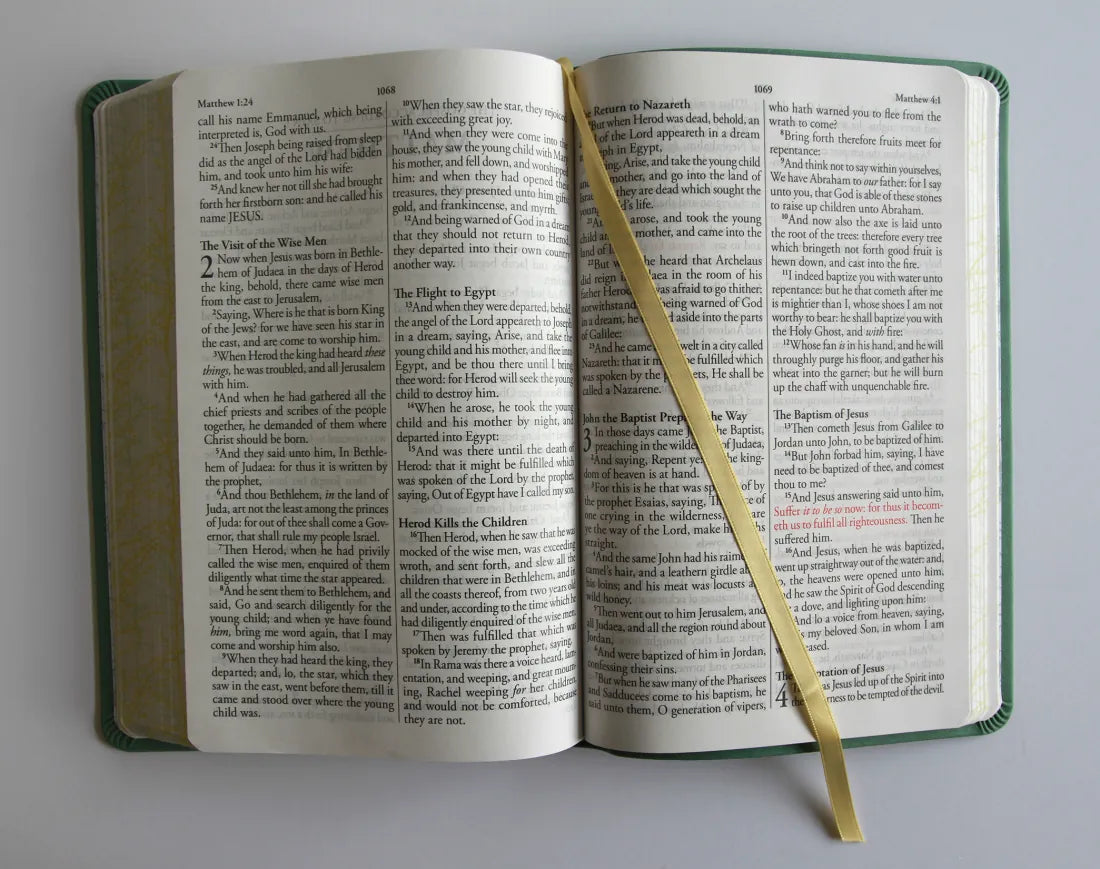 Matthew 1:24
1068
call his name Emmanuel, which being
interpreted is, God with us.
24Then Joseph being raised from sleep
did as the angel of the Lord had bidden
him, and took unto him his wife:
25And knew her not till she had brought
forth her firstborn son: and he called his
name JESUS.
The Visit of the Wise Men
2 Now when Jesus was born in Bethle-
hem of Judaea in the days of Herod
the king, behold, there came wise men
from the east to Jerusalem,
2Saying, Where is he that is born King
of the Jews? for we have seen his star in
the east, and are come to worship him.
3When Herod the king had heard these
things, he was troubled, and all Jerusalem
with him.
4And when he had gathered all the
chief priests and scribes of the people
together, he demanded of them where
Christ should be born.
5And they said unto him, In Bethle-
hem of Judaea: for thus it is written by
the prophet,
6And thou Bethlehem, in the land of
Juda, art not the least among the princes
of Juda: for out of thee shall come a Gov-
ernor, that shall rule my people Israel.
7Then Herod, when he had privily
called the wise men, enquired of them
diligently what time the star appeared.
8And he sent them to Bethlehem, and
said, Go and search diligently for the
young child; and when ye have found
him, bring me word again, that I may
come and worship him also.
9When they had heard the king, they
departed; and, lo, the star, which they
saw in the east, went before them, till it
came and stood over where the young
child was.
10When they saw the star, they rejoiced
with exceeding great joy.
11And when they were come into the
house, they saw the young child with Mary
his mother, and fell down, and worshipped
him: and when they had opened their
treasures, they presented unto him gifts;
gold, and frankincense, and myrrh.
12And being warned of God in a dream
that they should not return to Herod,
they departed into their own country
another way.
The Flight to Egypt
13And when they were departed, behold,
the angel of the Lord appeareth to Joseph
in a dream, saying, Arise, and take the
young child and his mother, and flee into
Egypt, and be thou there until I bring
thee word: for Herod will seek the young
child to destroy him.
14When he arose, he took the young
child and his mother by night, and
departed into Egypt:
15And was there until the death of
Herod: that it might be fulfilled which
was spoken of the Lord by the prophet,
saying, Out of Egypt have I called my son.
Herod Kills the Children
16Then Herod, when he saw that he was
mocked of the wise men, was exceeding
wroth, and sent forth, and slew all the
children that were in Bethlehem, and in
all the coasts thereof, from two years old
and under, according to the time which he
had diligently enquired of the wise men.
17Then was fulfilled that which was
spoken by Jeremy the prophet, saying,
18In Rama was there a voice heard, lam-
entation, and weeping, and great mourn-
ing, Rachel weeping for her children,
and would not be comforted, because
they are not.
1069
Matthew 4:1
Return to Nazareth
But when Herod was dead, behold, an
of the Lord appeareth in a dream
in Egypt,
Arise, and take the young child
mother, and go into the land of
they are dead which sought the
life.
arose, and took the young
child mother, and came into the
land of
22But heard that Archelaus
did reign in the room of his
father was afraid to go thither:
notwithstanding being warned of God
in a dream, he aside into the parts
of Galilee:
23And he came dwelt in a city called
Nazareth: that it be fulfilled which
was spoken by the He shall be
called a Nazarene.
John the Baptist the Way
3 In those days came the Baptist,
preaching in the of Judaea,
2And saying, Repent the king-
dom of heaven is at hand.
3For this is he that was of by
the prophet Esaias, saying, of
one crying in the wilderness,
ye the way of the Lord, make
straight.
4And the same John had his
camel's hair, and a leathern girdle
his loins; and his meat was locusts
wild honey.
5Then went out to him Jerusalem, and
all Judaea, and all the region round about
Jordan,
6And were baptized of him in Jordan,
confessing their sins.
7But when he saw many of the Pharisees
and Sadducees come to his baptism, he
said unto them, O generation of vipers,
who hath warned you to flee from the
wrath to come?
8Bring forth therefore fruits meet for
repentance:
9And think not to say within yourselves,
We have Abraham to our father: for I say
unto you, that God is able of these stones
to raise up children unto Abraham.
10And now also the axe is laid unto
the root of the trees: therefore every tree
which bringeth not forth good fruit is
hewn down, and cast into the fire.
11I indeed baptize you with water unto
repentance: but he that cometh after me
is mightier than I, whose shoes I am not
worthy to bear: he shall baptize you with
the Holy Ghost, and with fire:
12Whose fan is in his hand, and he will
throughly purge his floor, and gather his
wheat into the garner; but he will burn
up the chaff with unquenchable fire.
The Baptism of Jesus
13Then cometh Jesus from Galilee to
Jordan unto John, to be baptized of him.
14But John forbad him, saying, I have
need to be baptized of thee, and comest
thou to me?
15And Jesus answering said unto him,
Suffer it to be so now: for thus it becom-
eth us to fulfil all righteousness. Then he
suffered him.
16And Jesus, when he was baptized,
went up straightway out of the water: and,
the heavens were opened unto him,
and he saw the Spirit of God descending
a dove, and lighting upon him:
And lo a voice from heaven, saying,
is my beloved Son, in whom I am
The of Jesus
4 was Jesus led up of the Spirit into
the to be tempted of the devil.